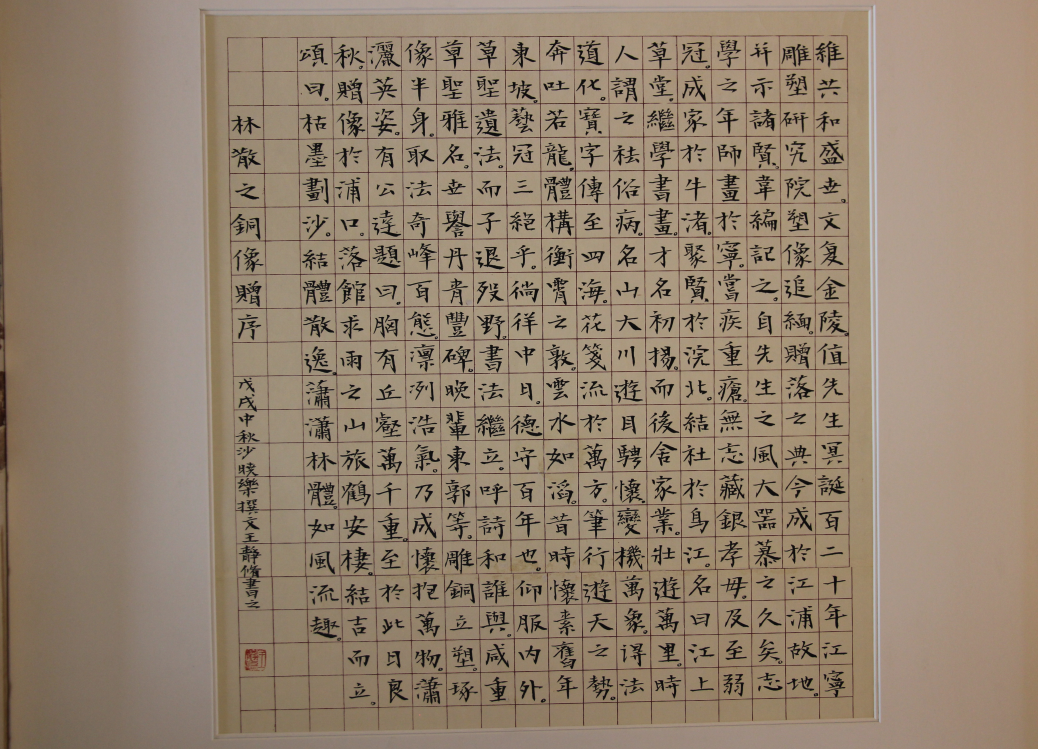 維共和盛世。文复金陵。值先生冥誕百二十年江寧
雕塑研究院塑像追緬。贈落之典今成於江浦故地。
并示諸賢。韋編記之。自先生之風大器慕之久矣。志
學之年師畫於寧。嘗疾重瘡。無志藏銀孝毋。及至弱
冠。成家於牛渚。聚賢於浣北。結社於烏江。名曰江上
草堂。繼學書畫。才名初揚。而後舍家業。壯遊萬里。時
人謂之祛俗病。名山大川遊目騁懷。變機萬象。得法
道化。寶字傳至四海。花箋流於萬方。筆行遊天之勢。
奔吐若龍。體構衡霄之敦。雲水如滔。昔時懷素舊年
東坡。藝冠三絕乎。徜徉中日。德守百年也。仰服内外。
草聖遺法。而子退歿野。書法繼立。呼詩和誰與。咸重
草聖雅名。世譽丹青豐碑。晚輩東郭等。雕銅立塑。琢
像半身。取法奇峰百態。凛冽浩氣。乃成懷抱萬物。瀟
灑英姿。有公逵題曰。胸有丘壑萬千重。至於此日良
秋。贈像於浦口。落館求雨之山旅鶴安棲。結吉而立。
頌曰。枯墨劃沙。結體散逸。瀟瀟林體。如風流趣。
林散之銅像贈序
戊戌中秋沙樂撰文王靜脩書之